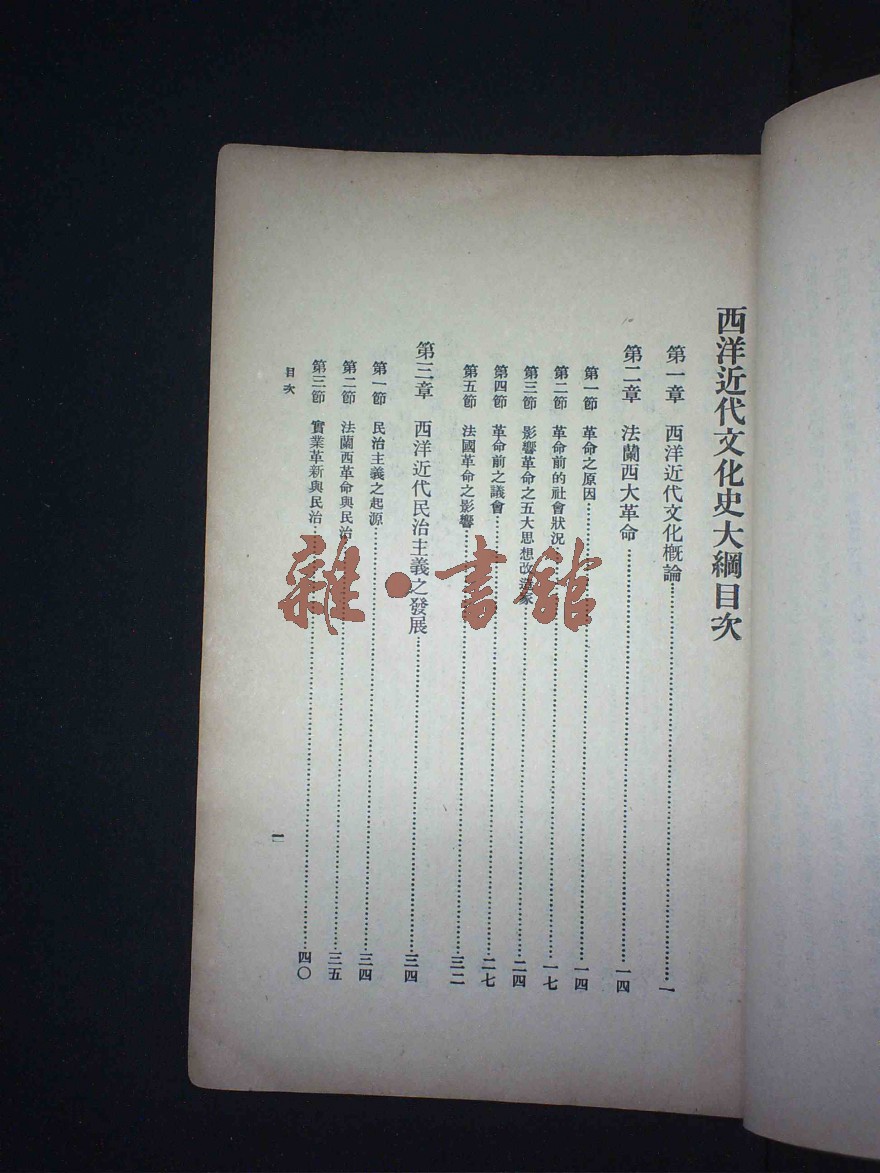 西洋近代文化史大綱目次
第一章 西洋近代文化概論……一
第二章 法蘭西大革命……一四
第一節 革命之原因……一四
第二節 革命前的社會狀況……一七
第三節 影響革命之五大思想改造家……二四
第四節 革命前之議會……二七
第五節 法國革命之影響……三二
第三章 西洋近代民治主義之發展……三四
第一節 民治主義之起源……三四
第二節 法蘭西革命與民治……三五
第三節 實業革新與民治……四〇
目次
一
雜·書館